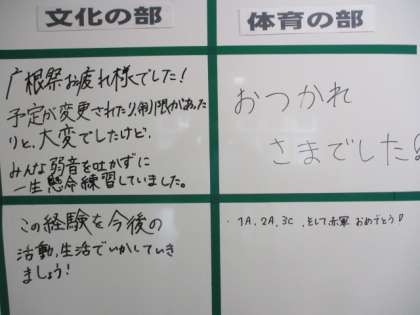 文化の部
広根祭お疲れ様でした!
予定が変更されたり、制限があった
りと、大変でしたけど、
みんな弱音を吐かずに
一生懸命練習していました。
この経験を今後の
活動、生活でいかしていき
ましょう!
体育の部
おつかれ
さまでした
・1A、2A、3C、そして赤軍 おめでとう!